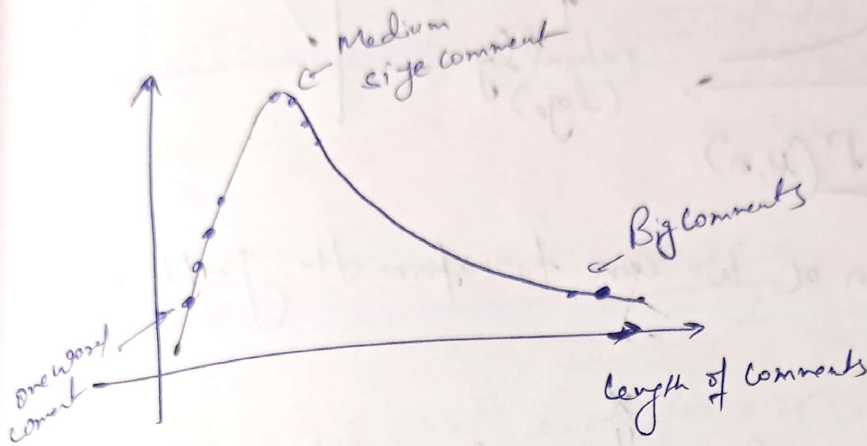 Medium
size comment
Big Comments
one word
coment
length of comments